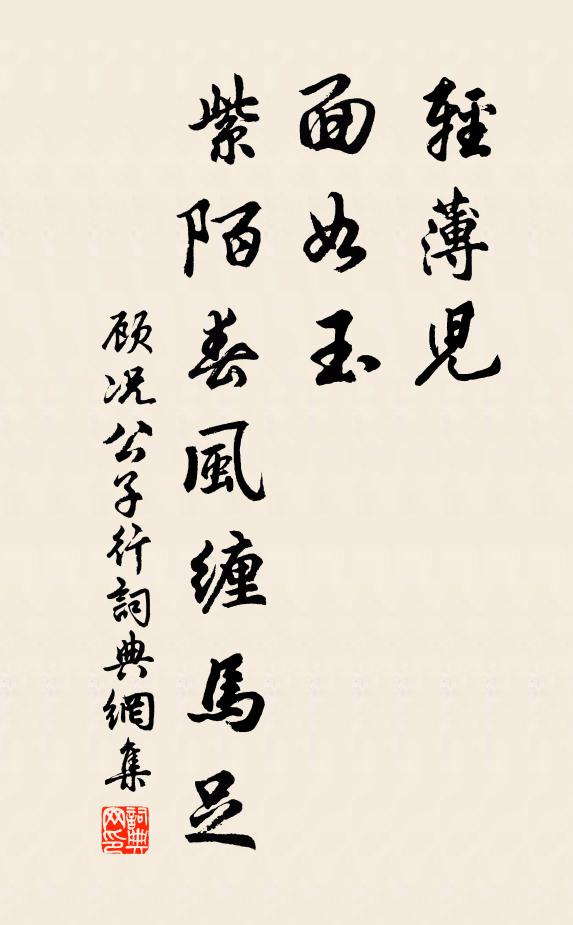 輕薄兒
面如玉
紫陌春風纏馬足
顾况公子行詞典網集
詞典网印